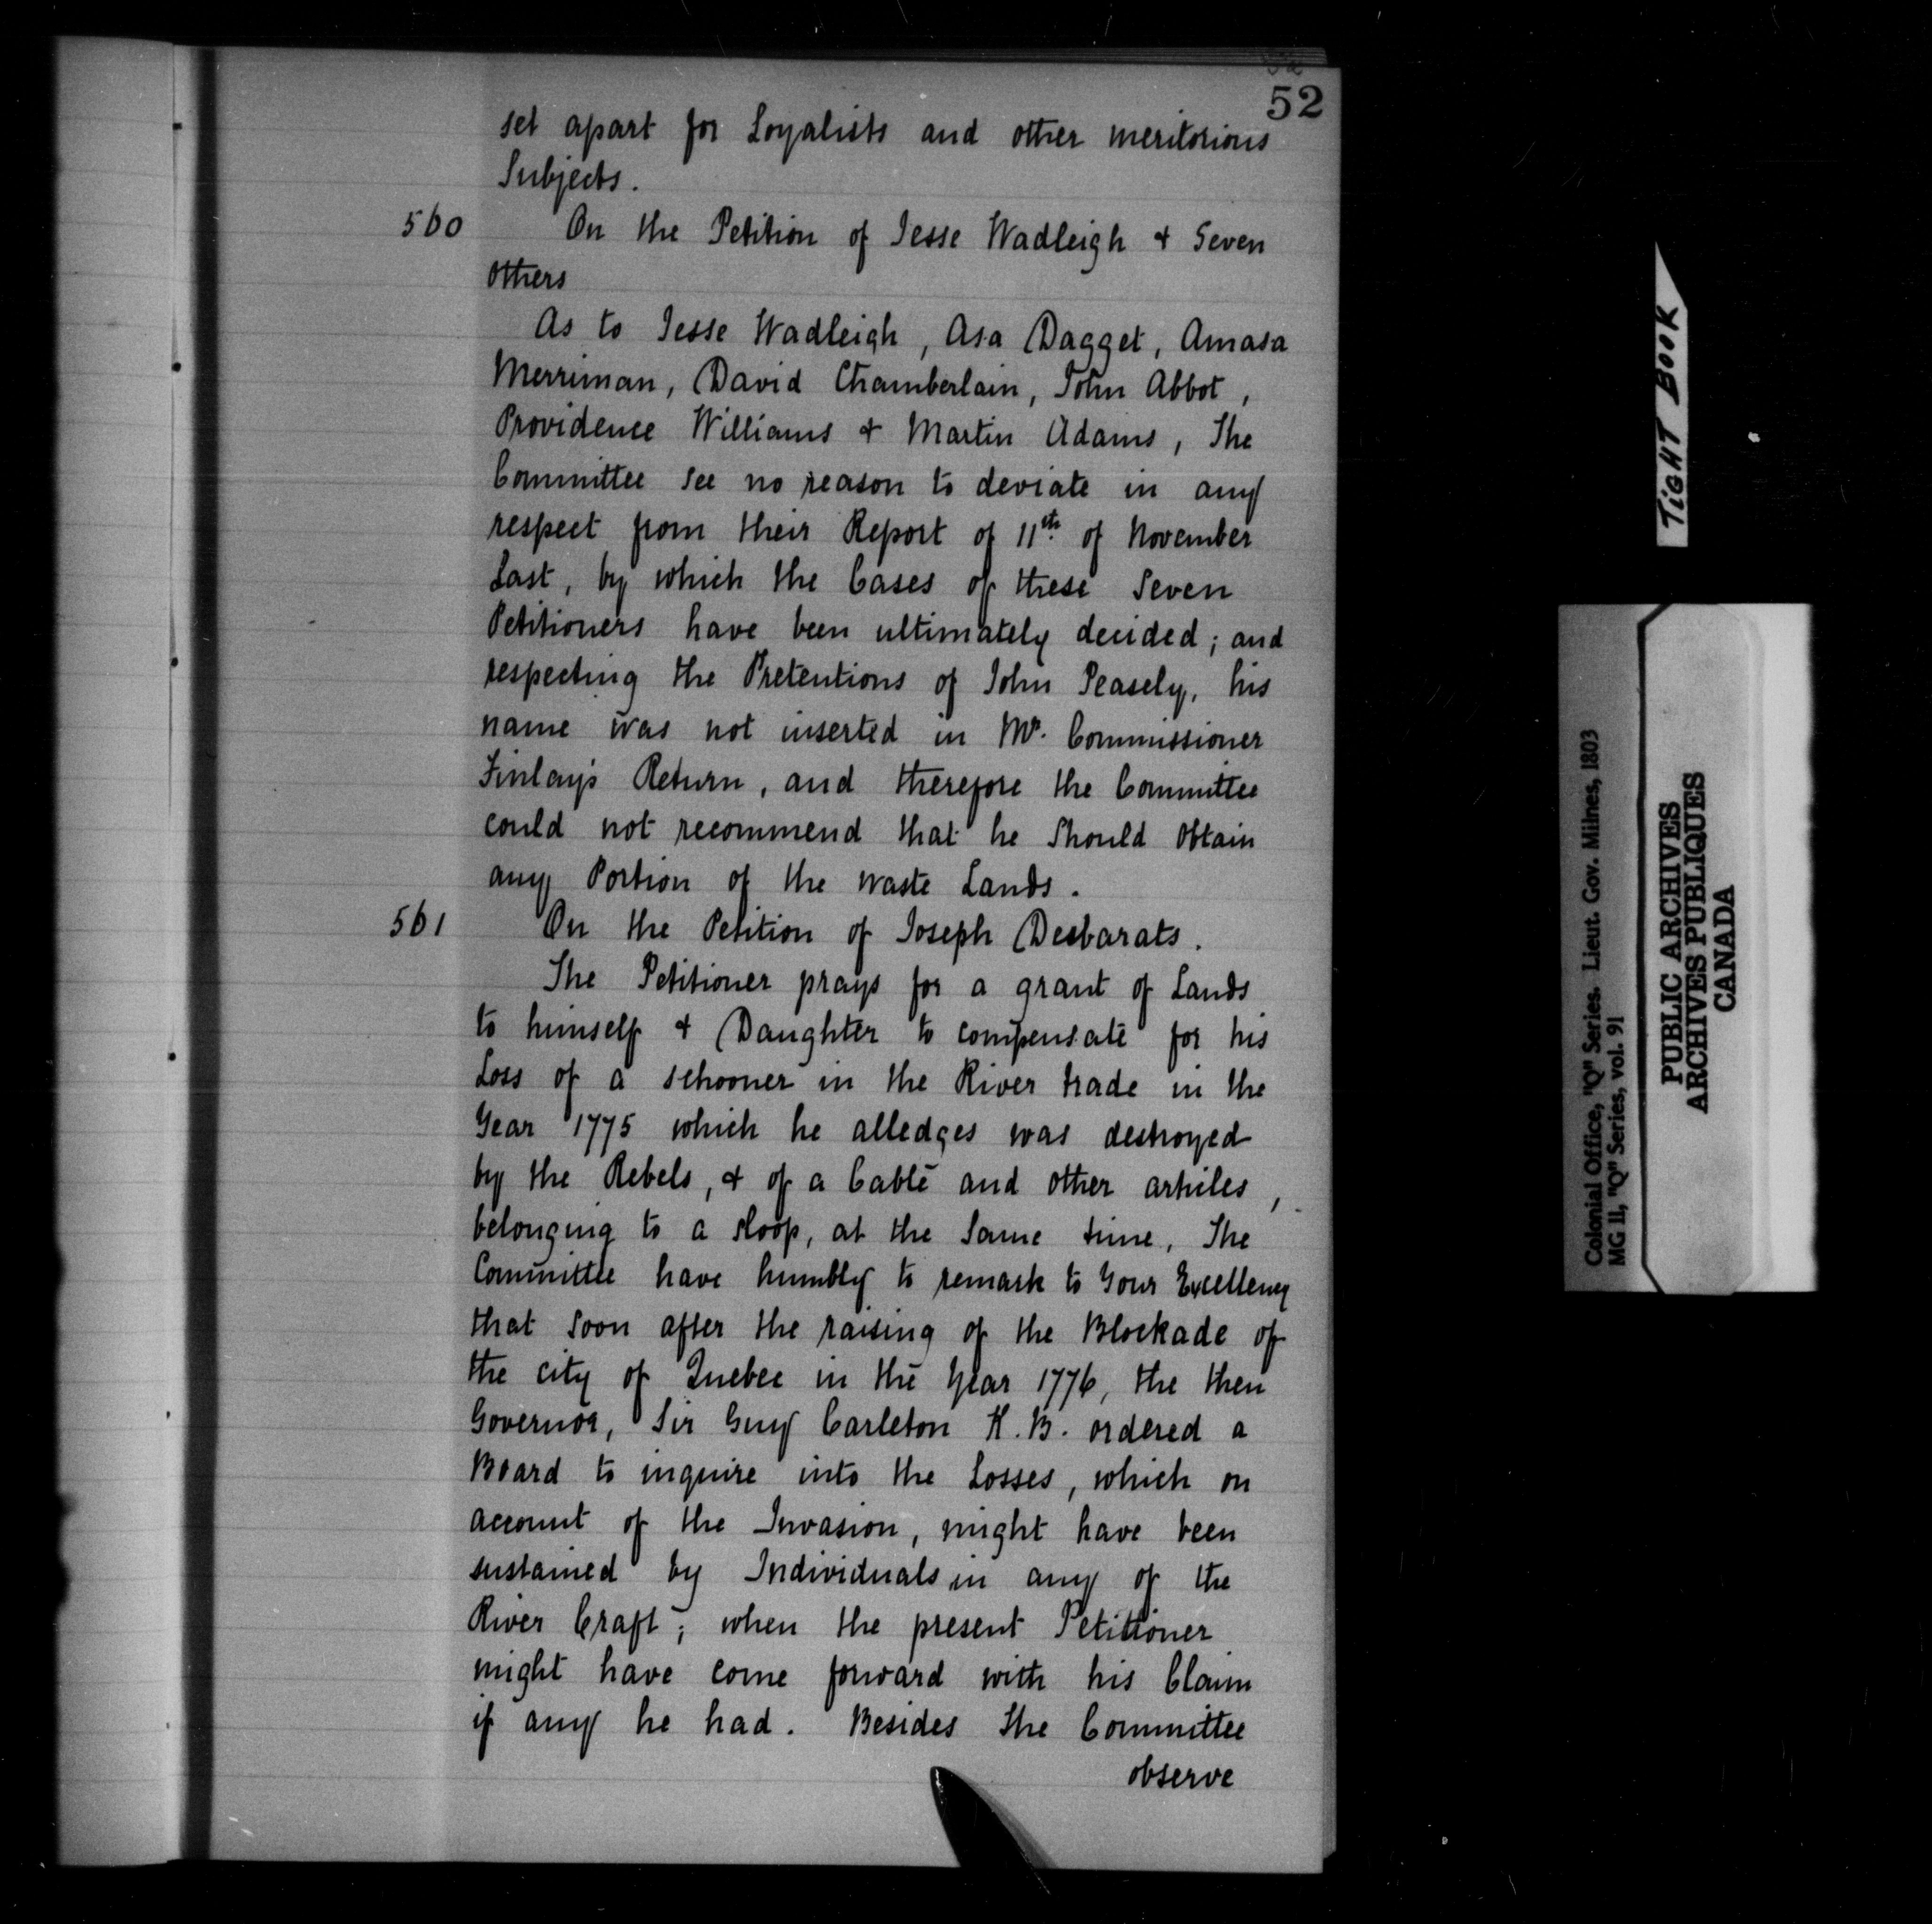 52
set apart for Loyalists and other meritorious
Subjects.
560 On the Petition of Jesse Wadleigh & Seven
others
As to Jesse Wadleigh, Asa Dagget, Amasa
Merriman, David Chamberlain, John Abbot,
Providence Williams & Martin Adams, The
Committee see no reason to deviate in any
respect from their Report of 11th. of November
Last, by which the Cases of these Seven
Petitioners have been ultimately decided; and
respecting the Pretentions of John Peasely, his
name was not inserted in Mr. Commissioner
Finlay's Return, and therefore the Committee
could not recommend that he Should obtain
any Portion of the waste Lands.
561 On the Petition of Joseph Desbarats.
The Petitioner prays for a grant of Lands
to himself & Daughter to compensate for his
Loss of a schooner in the River trade in the
Year 1775 which he alledges was destroyed
by the Rebels, & of a Cable and other articles,
belonging to a sloop, at the Same time, The
Committee have humbly to remark to Your Excellency
that Soon after the raising of the Blockade of
the city of Quebec in the Year 1776, the then
Governor, Sir Guy Carleton K.B. ordered a
Board to inquire into the Losses, which on
account of the Invasion, might have been
sustained by Individuals in any of the
River Craft; when the present Petitioner
might have come forward with his Claim
if any he had. Besides The Committee
observe
TIGHT BOOK
Colonial Office, "Q" Series. Lieut. Gov. Milnes, 1803
MG 11, "Q" Series, vol. 91
PUBLIC ARCHIVES
ARCHIVES PUBLIQUES
CANADA